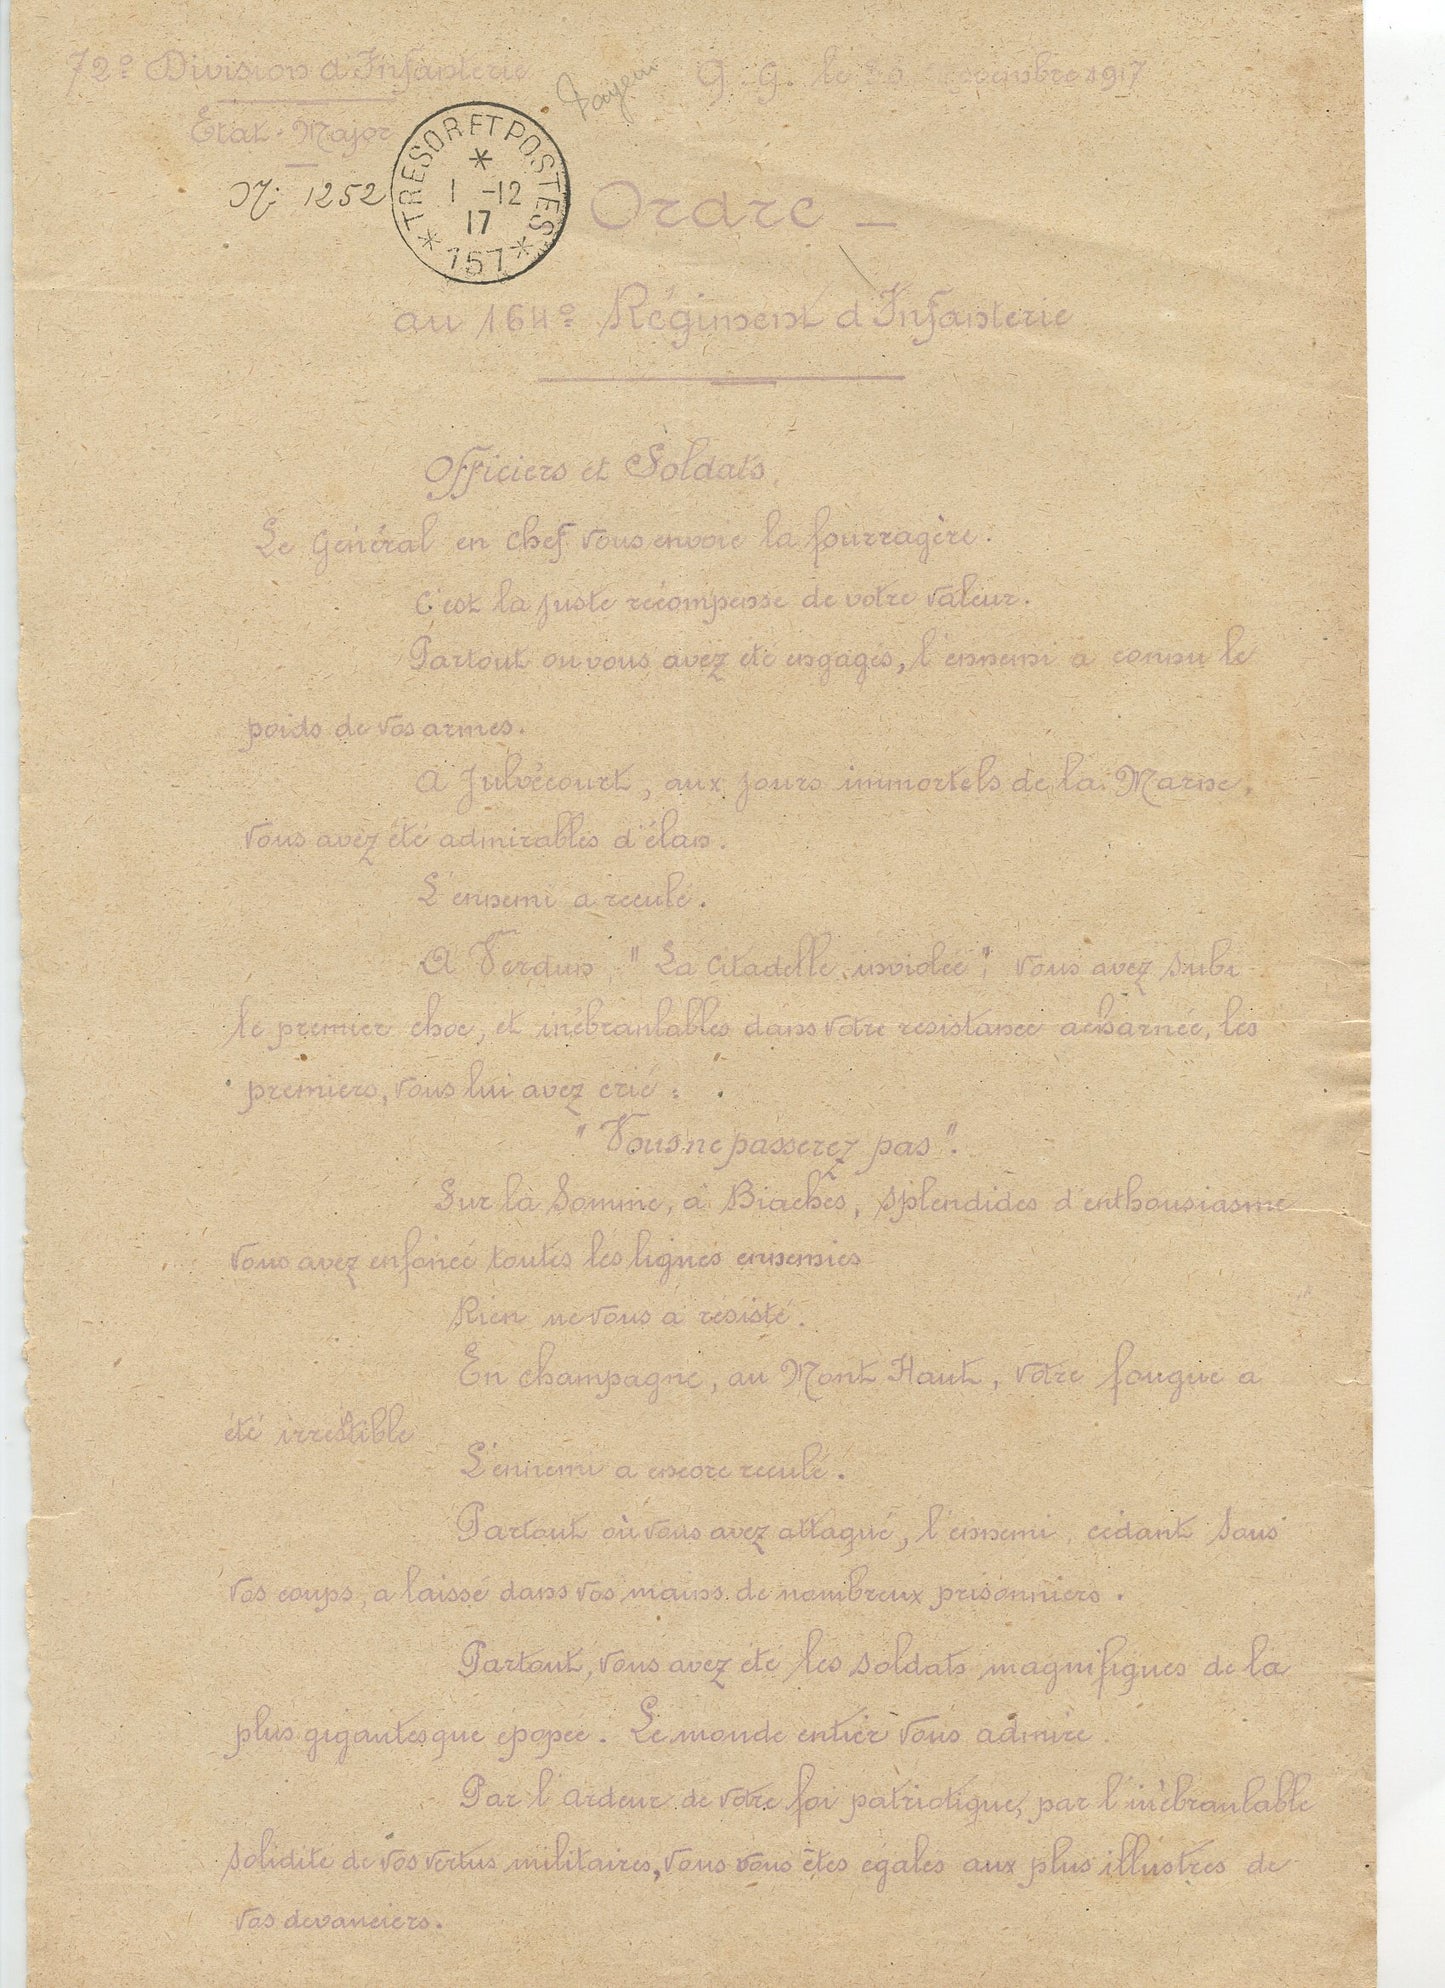 72e Division d'Infanterie
Q. G. le 30 Novembre 1917
Payeur
Etat-Major
No: 1252
TRESOR ET POSTES
1 -12
17
*157*
Ordre
au 164e Régiment d'Infanterie
Officiers et Soldats,
Le Général en chef vous envoie la fourragère.
C'est la juste récompense de votre valeur.
Partout ou vous avez été engagés, l'ennemi a connu le
poids de vos armes.
A Julvécourt, aux jours immortels de la Marne,
vous avez été admirables d'élan.
L'ennemi a reculé.
A Verdun, "La Citadelle inviolée", vous avez subi
le premier choc, et inébranlables dans votre résistance acharnée, les
premiers, vous lui avez crié :
"Vous ne passerez pas".
Sur la Somme, à Biaches, splendides d'enthousiasme
vous avez enfoncé toutes les lignes ennemies
Rien ne vous a résisté.
En Champagne, au Mont Haut, votre fougue a
été irrésistible
L'ennemi a encore reculé.
Partout où vous avez attaqué, l'ennemi, cédant sous
vos coups, a laissé dans vos mains de nombreux prisonniers.
Partout, vous avez été les soldats magnifiques de la
plus gigantesque épopée. Le monde entier vous admire.
Par l'ardeur de votre foi patriotique, par l'inébranlable
solidité de vos vertus militaires, vous vous êtes égalés aux plus illustres de
vos devanciers.